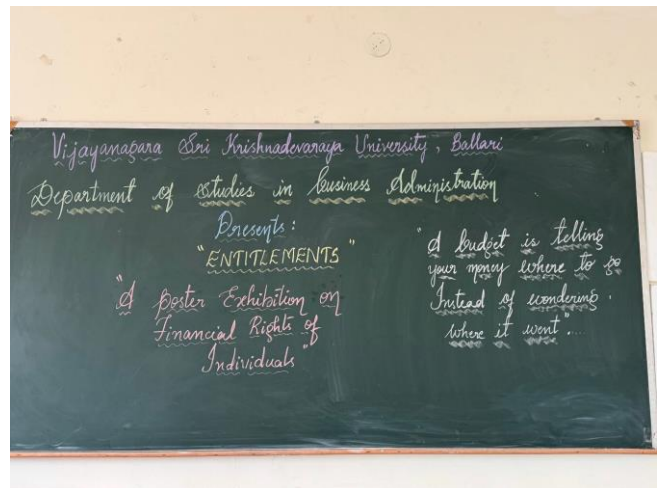 Vijayanagara Sri Krishnadevaraya University, Ballari
Department of studies in business Administration
Presents:
"ENTITLEMENTS"
"A Poster Exhibition on
Financial Rights of
Individuals"
"A budget is telling
your money where to go
Instead of wondering
where it went"....